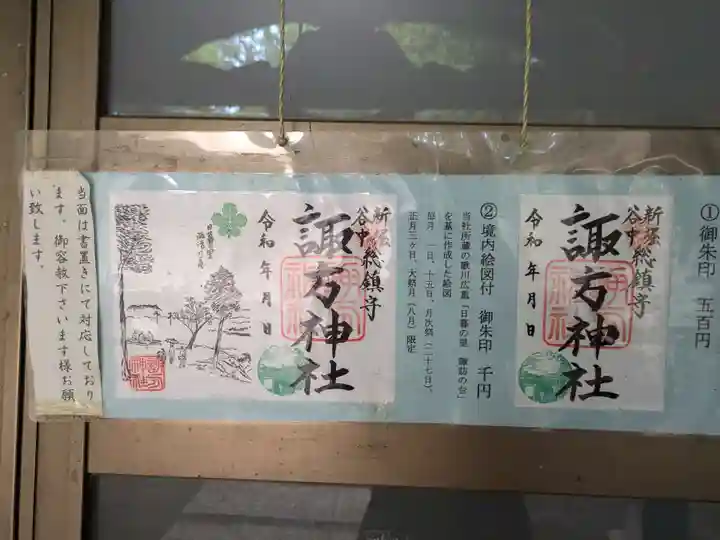 ① 御朱印 五百円
新堀
谷中 総鎮守
諏方神社
令和 年 月 日
② 境内絵図付 御朱印 千円
当社所蔵の歌川広重「日暮の里 諏訪の台」
を基に作成した絵図
毎月 一日、十五日、月次祭(二十七日)、
正月三ヶ日、大祭月(八月)限定
新堀
谷中 総鎮守
諏方神社
令和 年 月 日
当面は書置きにて対応しており
ます。御容赦下さいます様お願
い致します。